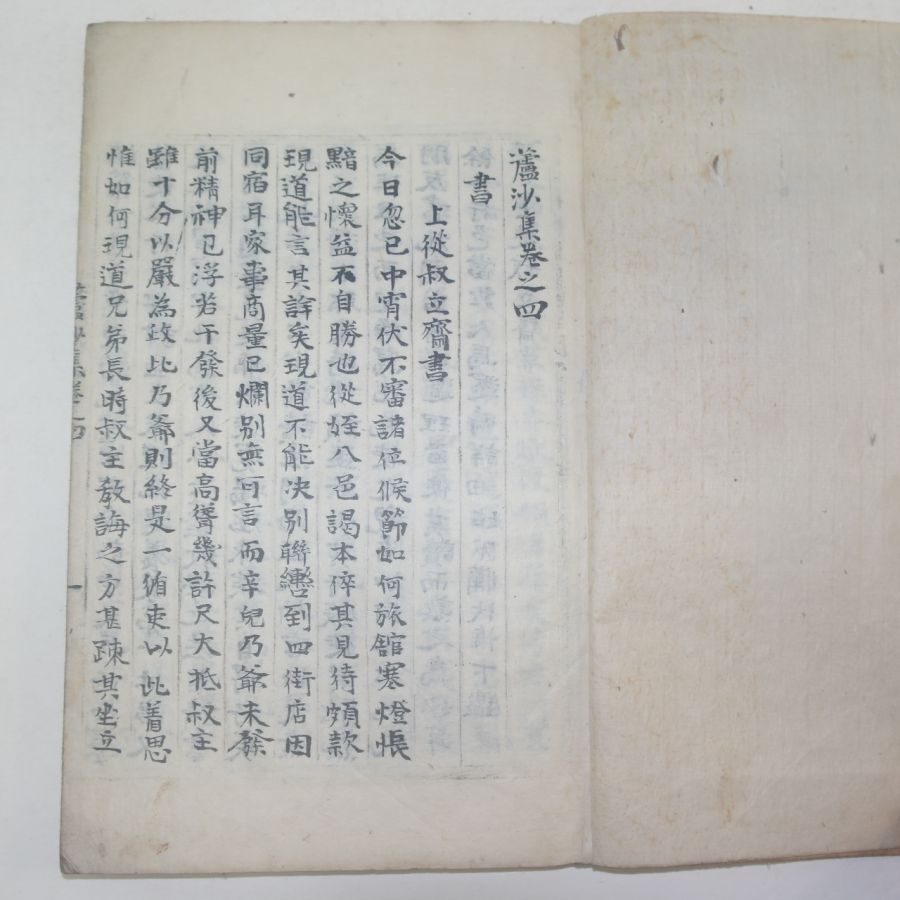 蘆沙集卷之四
書
上從叔立齋書
今日忽已中宵伏不審諸位候節如何旅館寒燈悵
黯之懷益不自勝也從姪八邑謁本倅其見待頗款
現道能言其詳矣現道不能决別聯轡到四街店因
同宿耳家事商量已爛別無可言而辛兒乃爺未發
前精神已浮若干發後又當高聳幾許尺大抵叔主
雖十分以嚴為政此乃爺則終是一循吏以此着思
惟如何現道兄弟長時叔主敎誨之方甚踈其坐立
蘆沙集卷之四
一